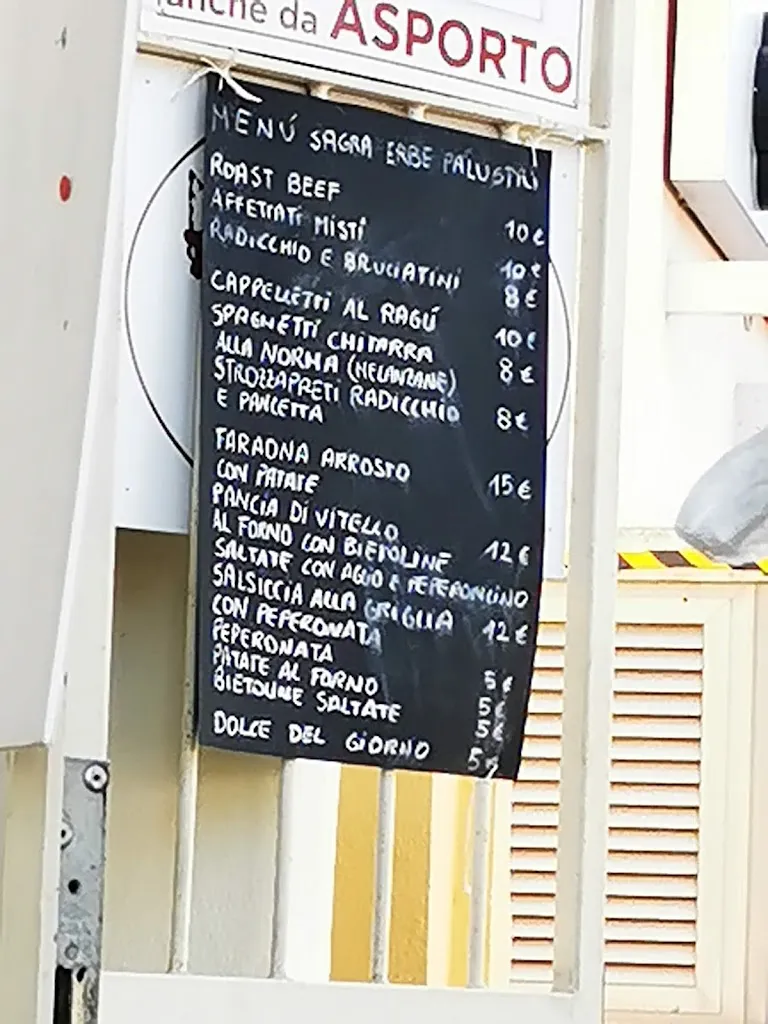 anche da ASPORTO
MENÚ SAGRA ERBE PALUSTRI
ROAST BEEF 10€
AFFETTATI MISTI 10€
RADICCHIO E BRUCIATINI 8€
CAPPELLETTI AL RAGÚ 10€
SPAGHETTI CHITARRA
ALLA NORMA (MELANZANE) 8€
STROZZAPRETI RADICCHIO
E PANCETTA 8€
FARAONA ARROSTO
CON PATATE 15€
PANCIA DI VITELLO
AL FORNO CON BIETOLINE 12€
SALTATE CON AGLIO E PEPERONCINO
SALSICCIA ALLA GRIGLIA
CON PEPERONATA 12€
PEPERONATA 5€
PATATE AL FORNO 5€
BIETOLINE SALTATE 5€
DOLCE DEL GIORNO 5€